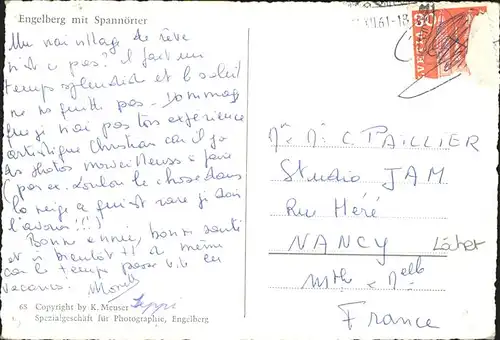 Engelberg mit Spannörter
Un vrai village de rêve
n'est ce pas? Il fait un
temps splendide et le soleil
ne quitte pas. Dommage
que je n'ai pas ton expérience
artistique Christian car il y a
des photos merveilleuses à faire
(par ex. Loulou le chose dans
la neige ce qui est rare je dois
l'avouer!!!)
Bonne année, bonne santé
et à bientôt
car le temps passe vite en
vacances.
65 Copyright by K. Meuser
Spezialgeschäft für Photographie, Engelberg
61-18
30
HELVETIA
Mr. M. C. PAILLIER
Studio JAM
Rue Héré
NANCY
Mthe - Melle
France